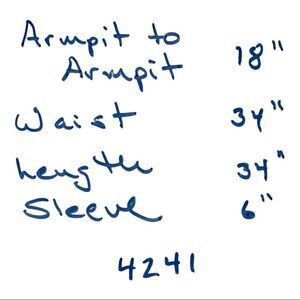 Armpit to 18"
Armpit
Waist 34"
Length 34"
Sleeve 6"
4241